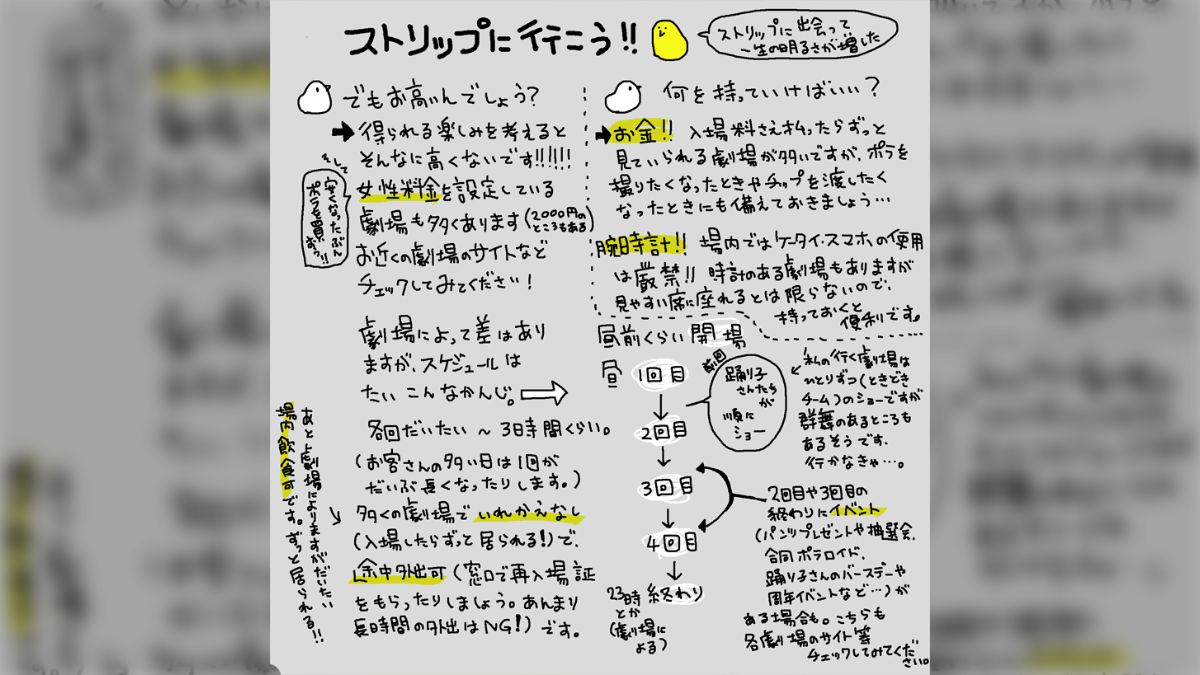 ストリップに行こう!!
ストリップに出会って
一生の明るさが増した
でもお高いんでしょう?
→得られる楽しみを考えると
そんなに高くないです!!!!!!
女性料金を設定している
劇場も多くあります(2000円の
ところもある)
お近くの劇場のサイトなど
チェックしてみてください!
そして
安くなったぶん
ポラを買おうっ!!
何を持っていけばいい?
→お金!! 入場料さえ払ったらずっと
見ていられる劇場が多いですが、ポラを
撮りたくなったときやチップを渡したく
なったときにも備えておきましょう…
腕時計!! 場内ではケータイ・スマホの使用
は厳禁!! 時計のある劇場もありますが
見やすい席に座れるとは限らないので、
持っておくと
便利です。
劇場によって差はあり
ますが、スケジュールは
だいたいこんなかんじ。
各回だいたい〜3時間くらい。
(お客さんの多い日は1回が
だいぶ長くなったりします。)
多くの劇場でいれかえなし
(入場したらずっと居られる!)で、
途中外出可(窓口で再入場証
をもらったりしましょう。あんまり
長時間の外出はNG!)です。
あと劇場によりますがだいたい
場内飲食可です。ずっと居られる!!
昼前くらい 開場
昼 1回目
↓
2回目
↓
3回目
↓
4回目
↓
23時 終わり
とか
(劇場に
よる)
毎回
踊り子
さんたち
が
順に
ショー
私の行く劇場は
ひとりずつ(ときどき
チーム)のショーですが
群舞のあるところも
あるそうです。
行かなきゃ…。
2回目や3回目の
終わりにイベント
(パンツプレゼントや抽選会、
合同ポラロイド、
踊り子さんのバースデーや
周年イベントなど…)が
ある場合も。こちらも
各劇場のサイト等
チェックしてみてくだ
さい。